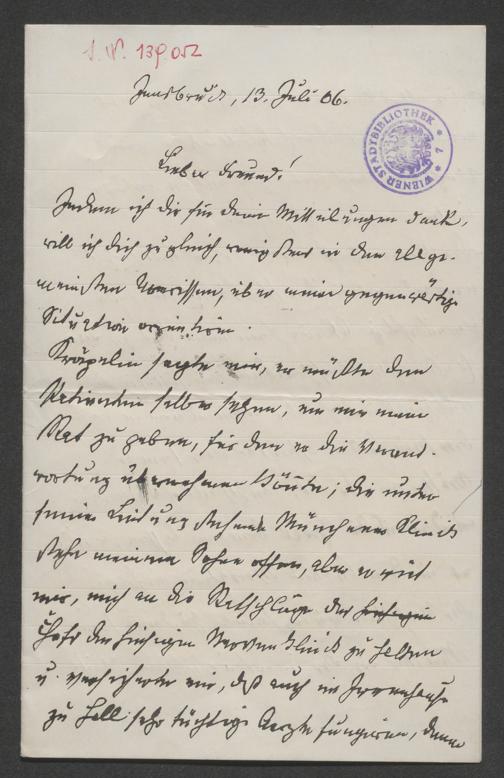 I. N. 139.052
Innsbruck, 13. Juli 06.
WIENER STADTBIBLIOTHEK * 7 *
Lieber Freund!
Indem ich dir für deine Mitteilungen danke,
will ich dich zugleich, wenigstens in den allge-
meinsten Umrissen, über meine gegenwärtige
Situation orientiren.
Kräpelin sagte mir, er müßte den
Patienten selber sehen, um mir einen
Rat zu geben, für den er die Verant-
wortung übernehmen könnte; die unter
seiner Leitung stehende Münchener Klinik
stehe meinem Sohne offen, aber er riet
mir, mich an die Ratschläge des hiesigen
Chefs der hiesigen Nervenklinik zu halten
u. versicherte mir, daß auch im Irrenhause
zu Hall sehr tüchtige Aerzte fungiren, denen